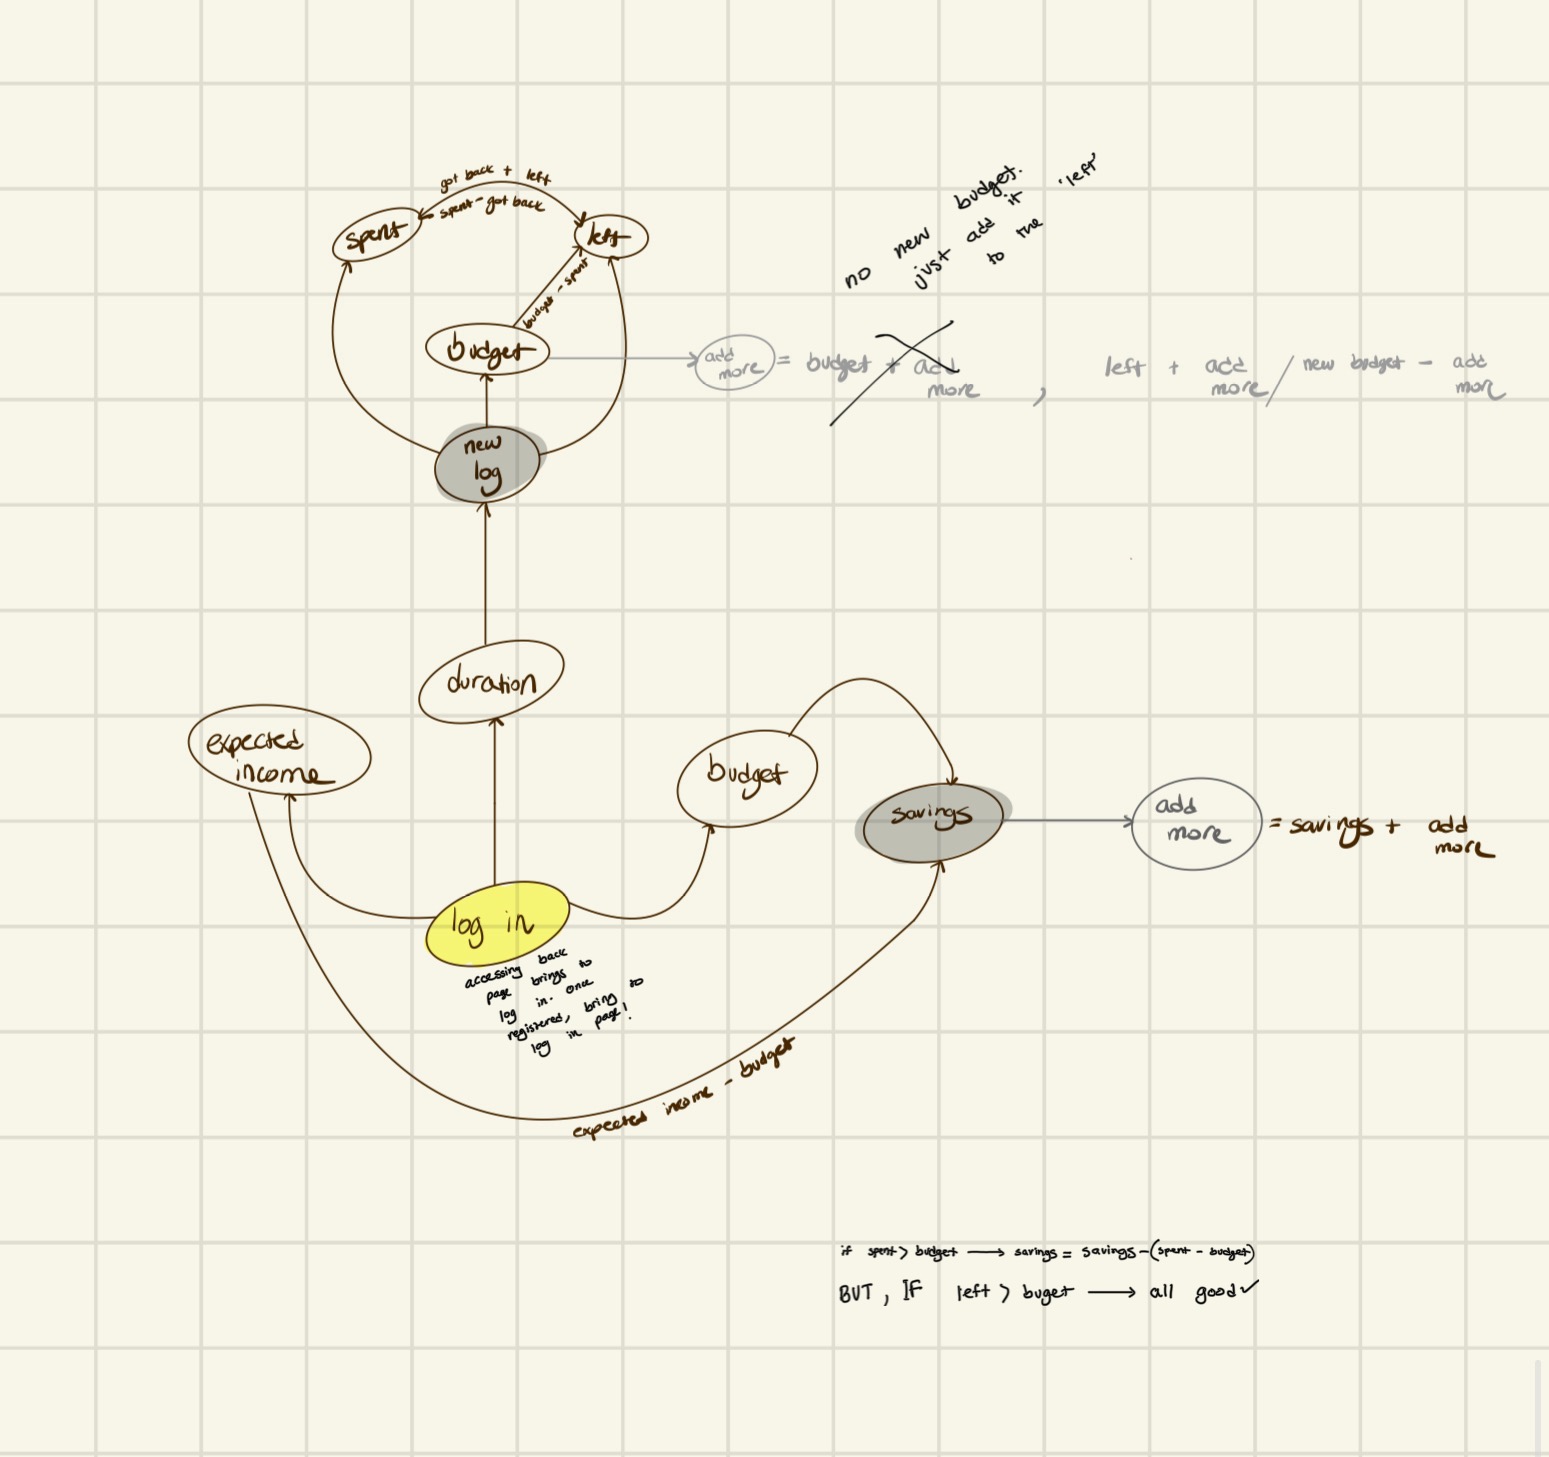 got back + left
spent - got back
spent
left
budget - spent
budget
no new budget.
just add it
to the 'left'
add
more
= budget + add
more
,
left + add
more
/ new budget - add
more
new
log
duration
expected
income
budget
savings
add
more
= savings + add
more
log in
accessing back
page brings to
log in. once
registered, bring to
log in page!
expected income - budget
if spent > budget → savings = savings - (spent - budget)
BUT, IF left > buget → all good ✓